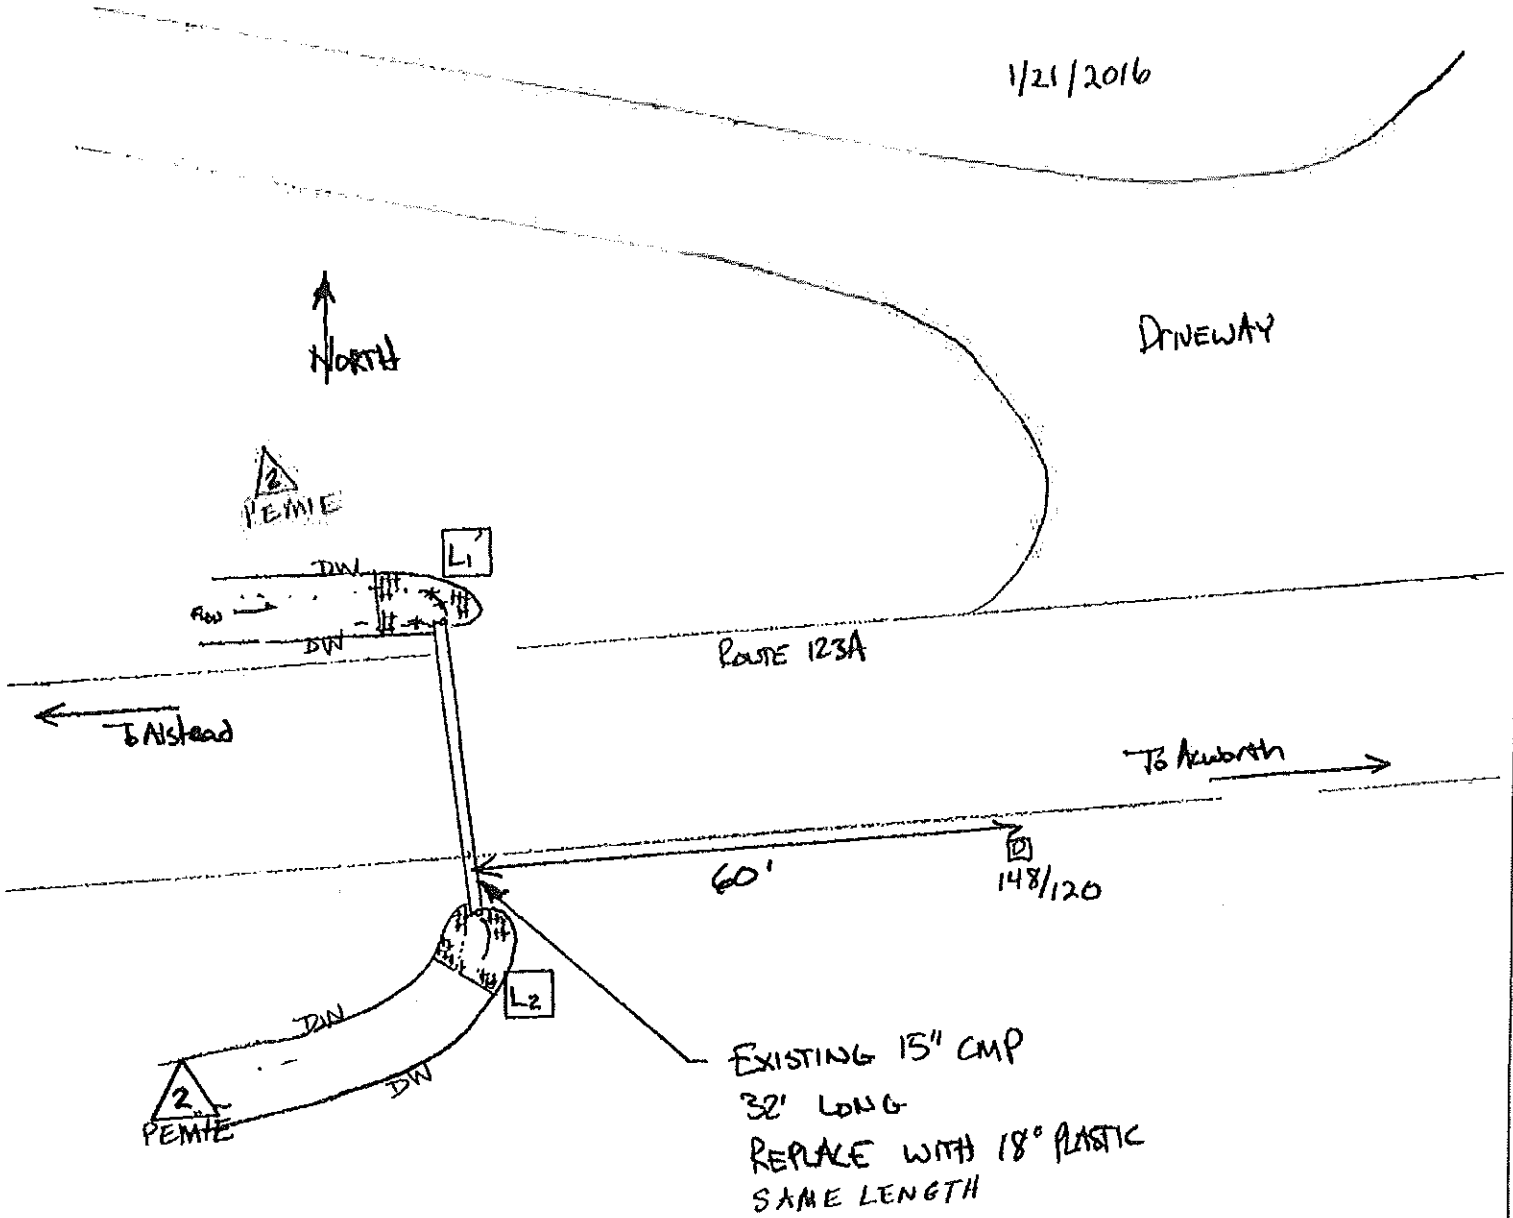 1/21/2016
DRIVEWAY
NORTH
2
PEMIE
L1
DW
FLOW
DW
ROUTE 123A
To Alstead
To Acworth
60'
D
148/120
L2
DW
DW
2
PEMIE
EXISTING 15" CMP
32' LONG
REPLACE WITH 18" PLASTIC
SAME LENGTH